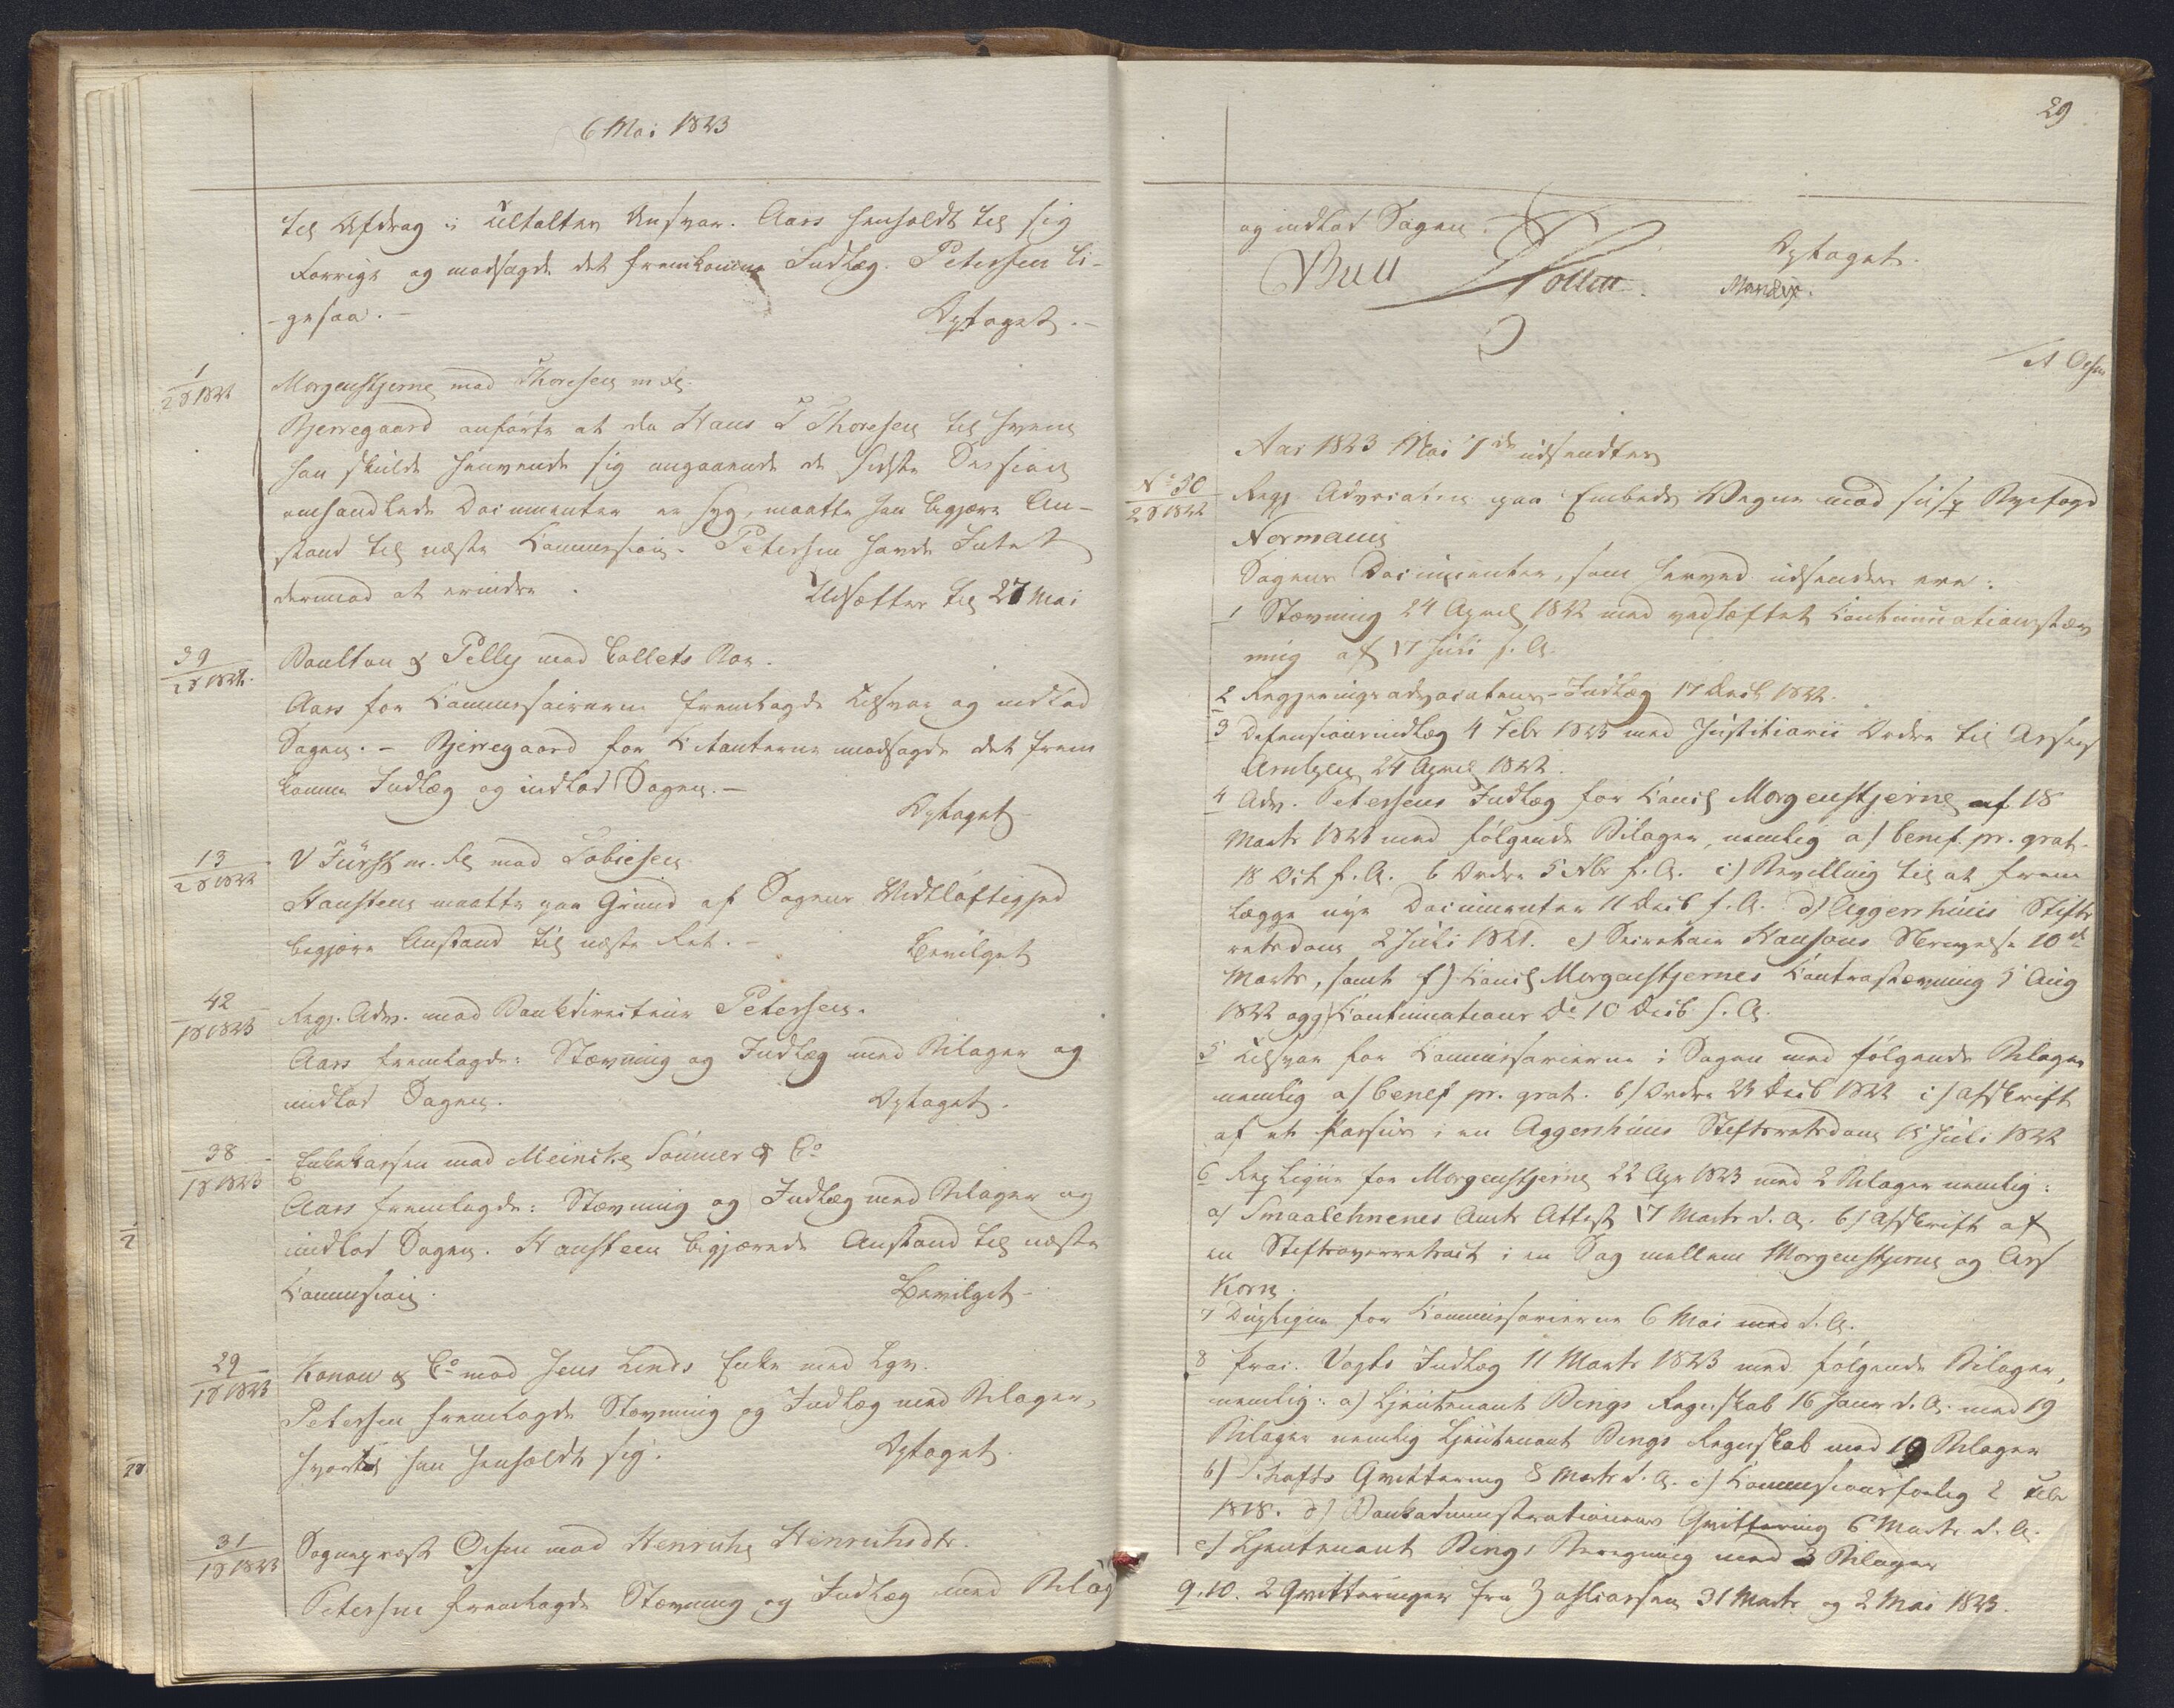 6 Mai 1823
til Afdrag i Udtaltes Ansvar. Aars henholdt til sig
Forrige og modsagde det fremkomne Indlæg. Petersen li-
-gesaa. -
Optaget. -
1
2 S 1822
Morgenstjerne mod Thoresen m. fl.
Bjerregaard anførte at da Hans T Thoresen til hvem
han skulde henvende sig angaaende de sidste Session
omhandlede Documenter er syg, maatte han begjære An-
stand til næste Commission. Petersen havde Intet
dermod at erindre.
Udsættes til 27 Mai
39
2 S 1822.
Boulton & Pelly mod Collets Boe.
Aars for Commissairerne fremlagde Tilsvar og indlod
Sagen. - Bjerregaard for Citanterne modsagde det frem
komne Indlæg og indlod Sagen. -
Optaget -
13
2 S 1822
V Fürst m. fl mod Tobiesen
Hansteen maatte paa Grund af Sagens Vidtløftighed
begjære Anstand til næste Ret. -
Bevilget
42
1 S 1823
Regj. Adv. mod Bankdirecteur Petersen.
Aars fremlagde: Stævning og Indlæg med Bilager og
indlod Sagen.
Optaget.
38
1 S 1823
Enkekassen mod Meincke Sommer & Co
Aars fremlagde: Stævning og Indlæg med Bilager og
indlod Sagen. Hansteen begjærede Anstand til næste
Commission.
Bevilget -
29
1 S 1823
Konow & Co mod Jens Lends Enke med Lgv.
Petersen fremlagde Stævning og Indlæg med Bilager,
hvortil han henholdt sig.
Optaget.
31
1 S 1823
Sognepræst Olsen mod Henriche Henrichsdtr.
Petersen fremlagde Stævning og Indlæg med Bilag
29
og indlod Sagen.
Optaget.
Bull
Collett.
Aar 1823 Mai 7de udsendtes
No 50
2 S 1822
Regj. Advocaten paa Embeds Vegne mod susp Byefogd
Normann
Sagens Documenter, som herved udsendes ere:
1 Stævning 24 April 1822 med vedhæftet Continuationsstæv
ning af 17 Juli s. A.
2 Regjeringsadvocatens Indlæg 17 Decb 1822.
3 Defensionsindlæg 4 Febr 1823 med Justitiarii Ordre til Assess
Arntzen 24 April 1822.
4 Adv. Petersens Indlæg for Cancl Morgenstjerne af 18
Marts 1823 med følgende Bilager, nemlig a) benef. pr. grat.
18 Oct s. A. b Ordre 5 Nbr s. A. c) Bevilling til at frem
lægge nye Documenter 11 Decb s. A. d) Aggershuus Stifts
retsdom 2 Juli 1821. e) Secretair Hansons Skrivelse 10de
Marts, samt f) Cancl Morgenstjernes Contrastævning 5 Aug
1822 og g) Continuations do 10 Decb s. A.
5 Tilsvar for Commissarierne i Sagen med følgende Bilager
nemlig a) benef pr. grat. b) Ordre 23 Decb 1822 c) Afskrift
af et Passus i en Aggershuus Stiftsretsdom 15 Juli 1822
6 Repliqve for Morgenstjerne 22 Apr 1823 med 2 Bilager nemlig:
a) Smaalehnenes Amts Attest 17 Marts d. A. b) Afskrift af
en Stiftsoverretsact i en Sag mellem Morgenstjerne og Ass
Korn.
7 Dupliqve for Commissarierne 6 Mai med d. A.
8 Proc. Vogts Indlæg 11 Marts 1823 med følgende Bilager,
nemlig: a) Lieutenant Bings Regnskab 16 Janr d. A. med 19
Bilager nemlig Lieutenant Bings Regnskab med 19 Bilager
b) Schafts Qvittering 8 Marts d. A. c) Commissionsforlig 2 Febr
1818. d) Bankadministrationens Qvittering 6 Marts d. A.
e) Lieutenant Bings Beregning med 3 Bilager
9. 10. 2 Qvitteringer fra Zahlcassen 31 Marts og 2 Mai 1823.